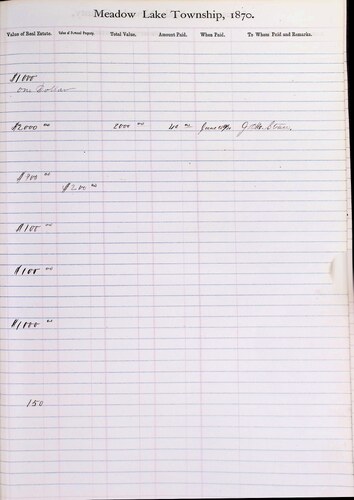 Meadow Lake Township, 1870.
Value of Real Estate. Value of Personal Property. Total Value. Amount Paid. When Paid. To Whom Paid and Remarks.
$1000
one Dollar
$2000 00 2000 00 40 00 June
$300 00
$200 00
$100 00
$100 00
$1,000 00
150